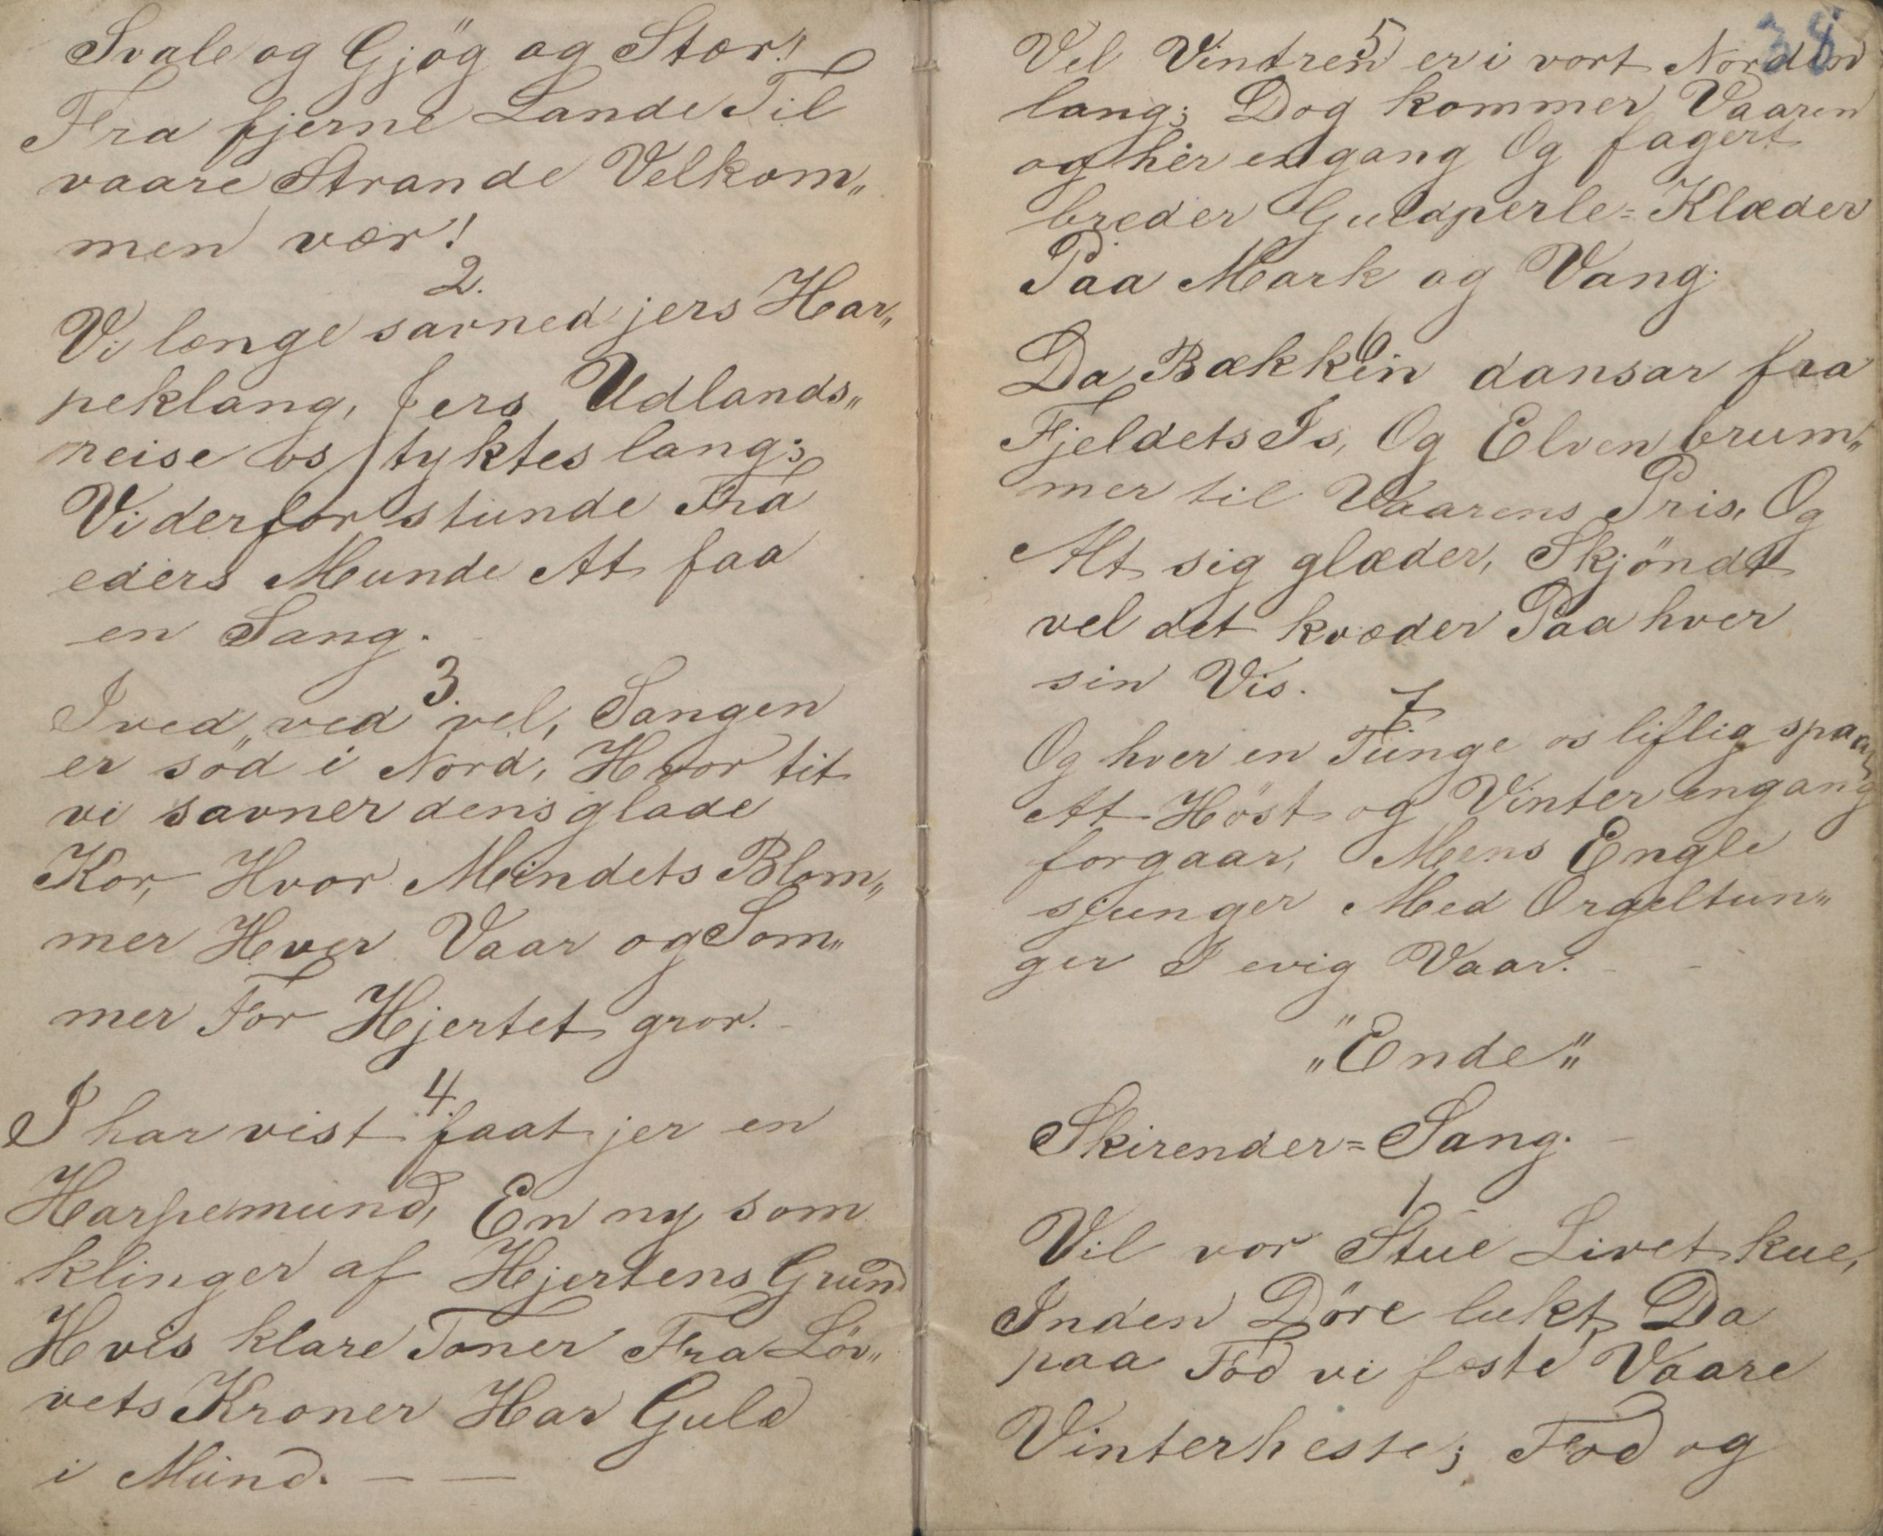 Svale og Gjög og Stær!
Fra fjerne Lande Til
vaare Strande Velkom„
men vær!
2.
Vi længe savned jers Har„
peklang, Jers Udlands„
reise os tyktes lang;
Vi derfor stunde Fra
eders Munde At faa
en Sang.
3.
I ved, ved vel, Sangen
er söd i Nord, Hvor tit
vi savner dens glade
Kor, Hvor Mindets Blom„
mer Hver Vaar og Som„
mer For Hjertet gror.
4.
I har vist faat jer en
Harpemund, En ny som
klinger af Hjertens Grund
Hvis klare Toner Fra Löv„
vets Kroner Har Guld
i Mund. — —
38
5
Vel Vintren er i vort Norden
lang; Dog kommer Vaaren
og her engang Og fagert
breder Guldperle=Klæder
Paa Mark og Vang.
6
Da Bækken dansar fra
Fjeldets Is, Og Elven brum„
mer til Vaarens Pris, Og
Alt sig glæder, Skjöndt
vel det kvæder Paa hver
sin Vis.
7
Og hver en Tunge os liflig spaar
At Höst og Vinter engang
forgaar, Mens Engle
sjunger Med Orgeltun„
ger I evig Vaar.
„Ende„
Skirender=Sang.
1
Vil vor Stue Livet kue,
Inden Döre lukt, Da
paa Fod vi fæste Vaare
Vinterheste; Fod og